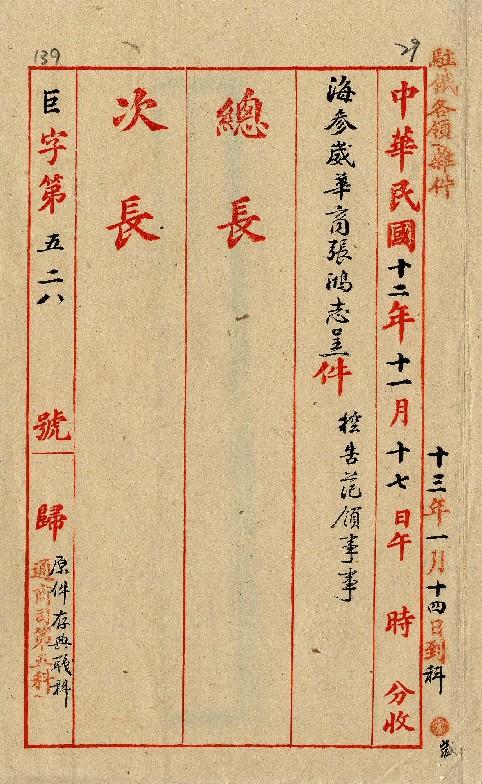 139
29
駐俄各領雜件
十三年一月十四日到科
中華民國十二年十一月十七日午 時 分收
海參崴華商張鴻志呈件 控告范領事事
總長
次長
巨字第五二八號 歸
原件存典職科
通商司第五科